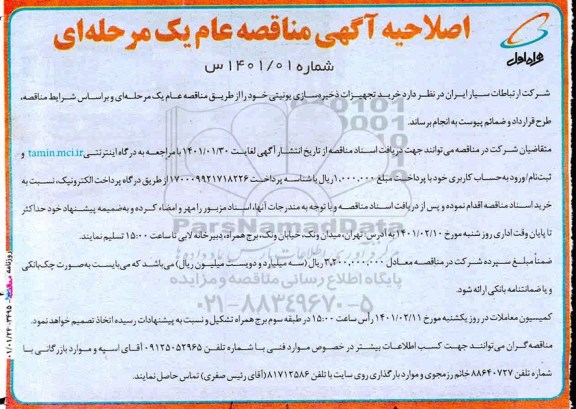 اصلاحیه آگهی مناقصه عام یک مرحله‌ای
همراه اول
شماره ۱۴۰۱/۰۱ س
شرکت ارتباطات سیار ایران در نظر دارد خرید تجهیزات ذخیره‌سازی یونیتی خود را از طریق مناقصه عام یک مرحله‌ای و بر اساس شرایط مناقصه،
طرح قرارداد و ضمائم پیوست به انجام برساند.
متقاضیان شرکت در مناقصه می‌توانند جهت دریافت اسناد مناقصه از تاریخ انتشار آگهی لغایت ۱۴۰۱/۰۱/۳۰ با مراجعه به درگاه اینترنتی tamin.mci.ir و
ثبت‌نام/ورود به حساب کاربری خود با پرداخت مبلغ ۱,۰۰۰,۰۰۰ ریال با شناسه پرداخت ۱۷۰۰۰۹۹۲۱۷۱۸۲۲۶ از طریق درگاه پرداخت الکترونیک، نسبت به
خرید اسناد مناقصه اقدام نموده و پس از دریافت اسناد مناقصه و با توجه به مندرجات آنها، اسناد مزبور را مهر و امضاء کرده و به ضمیمه پیشنهاد خود حداکثر
تا پایان وقت اداری روز شنبه مورخ ۱۴۰۱/۰۲/۱۰ به آدرس: تهران، میدان ونک، خیابان ونک، برج همراه، دبیرخانه لابی تا ساعت ۱۵:۰۰ تسلیم نمایند.
ضمناً مبلغ سپرده شرکت در مناقصه معادل ۳,۲۰۰,۰۰۰,۰۰۰ ریال (سه میلیارد و دویست میلیون ریال) می‌باشد که می‌بایست به صورت چک بانکی
و یا ضمانتنامه بانکی ارائه شود.
کمیسیون معاملات در روز یکشنبه مورخ ۱۴۰۱/۰۲/۱۱ رأس ساعت ۱۵:۰۰ در طبقه سوم برج همراه تشکیل و نسبت به پیشنهادات رسیده اتخاذ تصمیم خواهد نمود.
مناقصه‌گران می‌توانند جهت کسب اطلاعات بیشتر در خصوص موارد فنی با شماره تلفن ۰۹۱۲۵۰۵۲۹۶۵ آقای اسپه و موارد بازرگانی با
شماره تلفن ۸۸۶۴۰۷۲۷ خانم رزمجوی و موارد بارگذاری روی سایت با تلفن ۸۱۷۱۲۵۸۶ (آقای رئیس صفری) تماس حاصل نمایند.
ParsNamadData
پایگاه اطلاع رسانی مناقصه و مزایده
۰۲۱-۸۸۳۴۹۶۷۰-۵
روزنامه